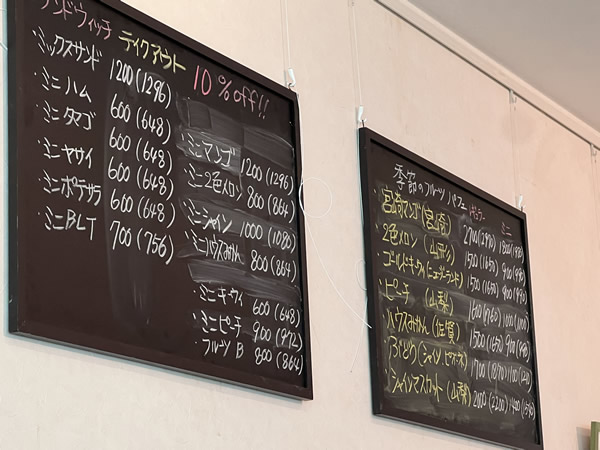 サンドウィッチ テイクアウト 10%off!!
ミックスサンド 1200(1296)
・ミニハム 600(648)
・ミニタマゴ 600(648)
・ミニヤサイ 600(648)
・ミニポテサラ 600(648)
・ミニBLT 700(756)
・ミニマンゴ 1200(1296)
・ミニ2色メロン 800(864)
・ミニシャイン 1000(1080)
・ミニハウスみかん 800(864)
ミニキウイ 600(648)
ミニピーチ 900(972)
フルーツB 800(864)
季節のフルーツパフェ レギュラー ミニ
・宮崎マンゴ(宮崎) 2700(2970) 1800(1980)
・2色メロン(山形) 1500(1650) 900(990)
・ゴールドキウイ(ニュージーランド) 1500(1650) 900(990)
・ピーチ(山梨) 1600(1760) 1000(1100)
・ハウスみかん(佐賀) 1500(1650) 900(990)
・シャインマスカット(山梨) 2000(2200)